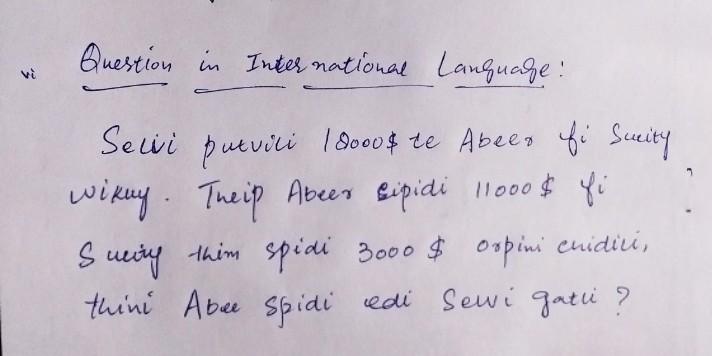 vi Question in International Language:
Selvi putvili 18000$ te Abeer fi Sucity
wikuy. Theip Abeer sipidi 11000$ fi ?
Sucity thim spidi 3000 $ orpini cnidili,
thini Abee spidi edi Selvi gatli ?